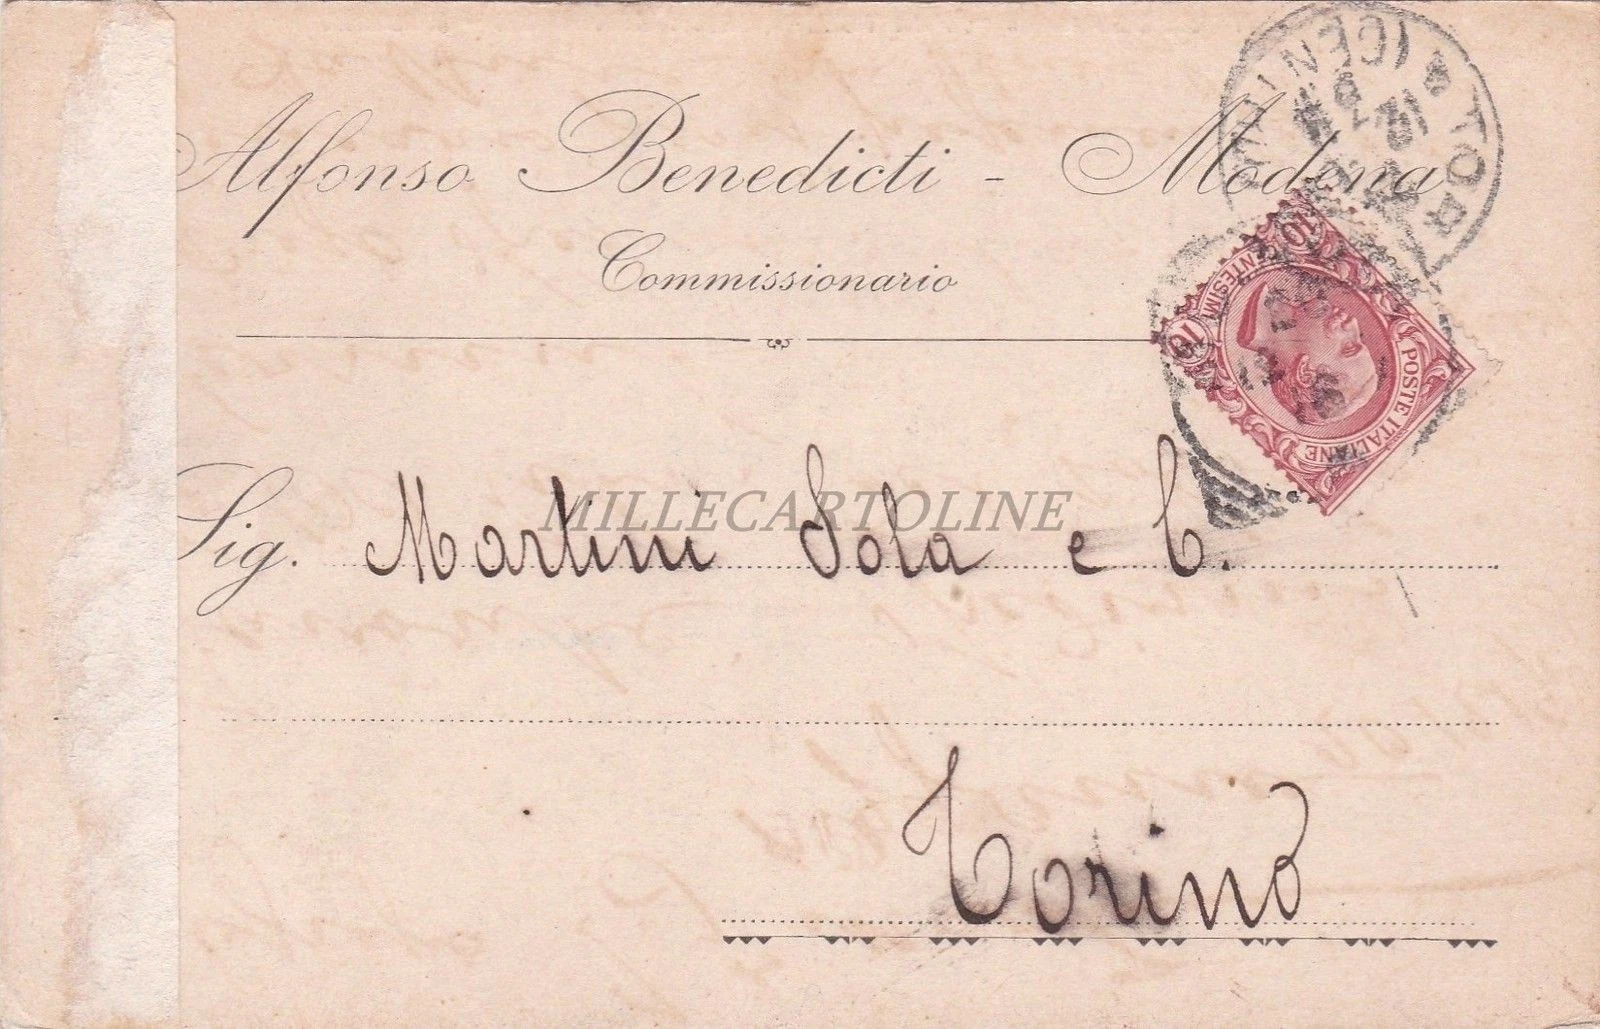 Alfonso Benedicti - Modena
Commissionario
10 CENTESIMI 10
POSTE ITALIANE
Sig. Martini Sola e C.
MILLECARTOLINE
Torino